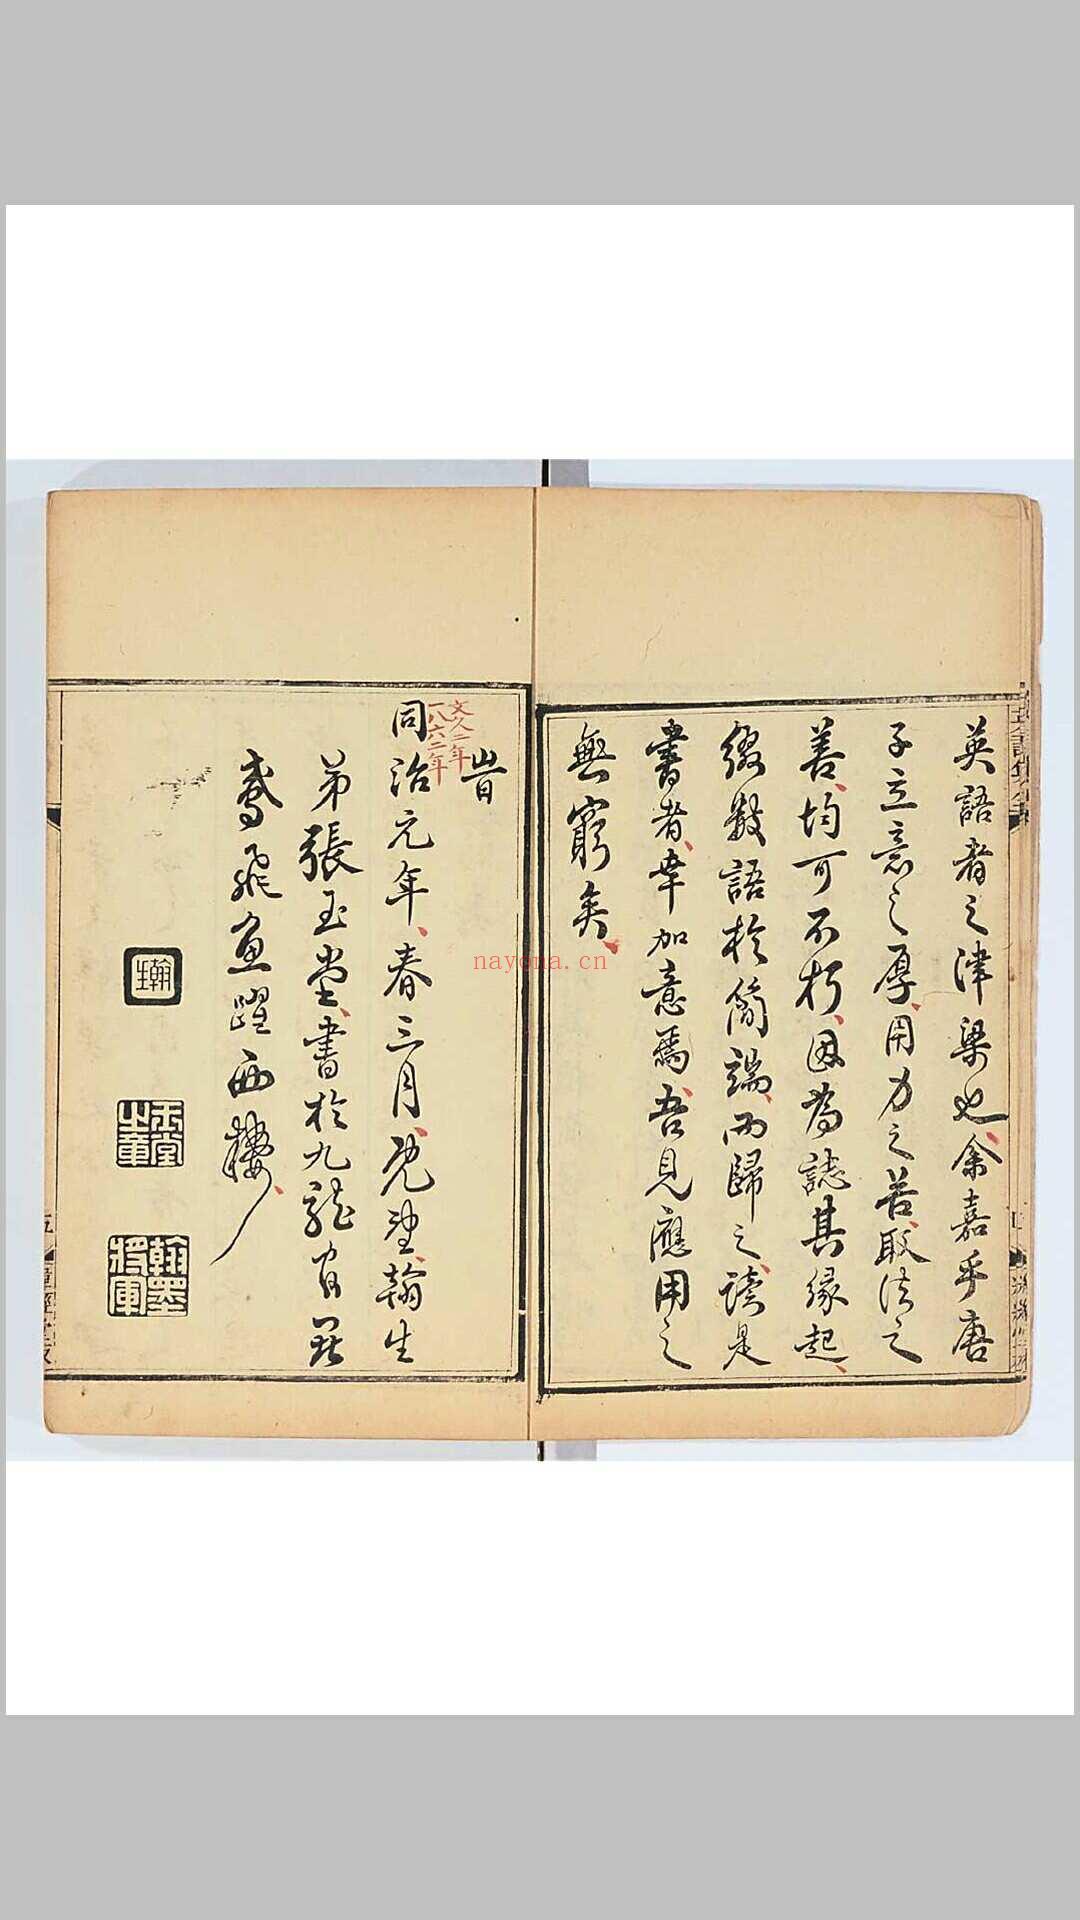 英語者之津梁也、余嘉乎唐
子立意之厚、用力之苦、取法之
善、均可不朽、因為誌其緣起、
綴數語於簡端、而歸之、讀是
書者、幸加意焉、吾見應用之
無窮矣、
旹
文久二年
一八六二年
同治元年、春三月、既望、翰生
弟張玉堂、書於九龍官署
鳶飛魚躍西樓、
翰生
玉堂之章
翰墨將軍
nayona.cn